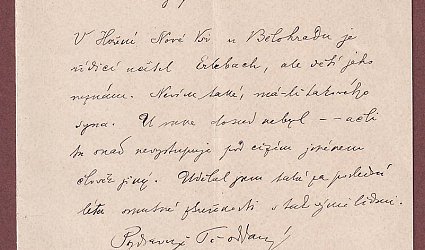 V Horní Nové Vsi u Bělohradu je
řídící učitel Erlebach, ale dětí jeho
neznám. Nevím také, má-li takového
syna. U mne dosud nebyl -- ač-li
tu snad nevystupuje pod cizím jménem
člověk jiný. Udělal jsem také za poslední
léta smutné zkušenosti s takovými lidmi.